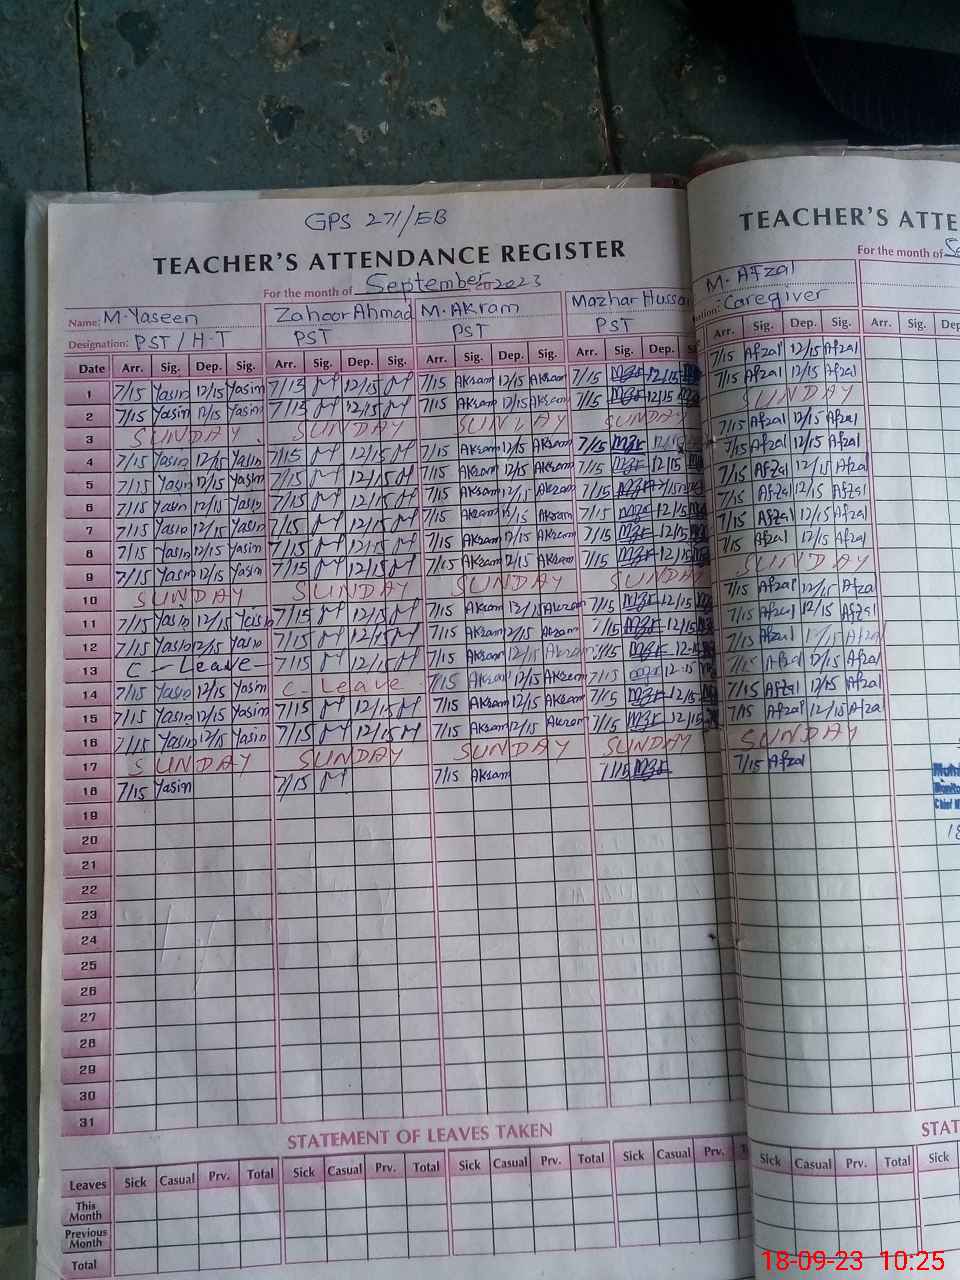 GPS 271/EB
TEACHER'S ATTENDANCE REGISTER
For the month of September 2023
Name: M. Yaseen Zahoor Ahmad M. Akram Mazhar Hussai
Designation: PST / H.T PST PST PST
Date Arr. Sig. Dep. Sig. Arr. Sig. Dep. Sig. Arr. Sig. Dep. Sig. Arr. Sig. Dep.
1 7/15 Yasin 12/15 Yasim 7/15 12/15 7/15 Akram 12/15 Akram 7/15 12/15
2 7/15 Yasim 12/15 Yasim 7/15 12/15 7/15 Akram 12/15 Akram 7/15 12/15
3 SUNDAY SUNDAY SUNDAY SUNDAY
4 7/15 Yasin 12/15 Yasin 7/15 12/15 7/15 Akram 12/15 Akram 7/15 12/15
5 7/15 Yasin 12/15 Yasim 7/15 12/15 7/15 Akram 12/15 Akram 7/15 12/15
6 7/15 Yasin 12/15 Yasin 7/15 12/15 7/15 Akram 12/15 Akram 7/15 12/15
7 7/15 Yasin 12/15 Yasin 7/15 12/15 7/15 Akram 12/15 Akram 7/15 12/15
8 7/15 Yasin 12/15 Yasin 7/15 12/15 7/15 Akram 12/15 Akram 7/15 12/15
9 7/15 Yasin 12/15 Yasin 7/15 12/15 7/15 Akram 12/15 Akram 7/15 12/15
10 SUNDAY SUNDAY SUNDAY SUNDAY
11 7/15 Yasin 12/15 Yasin 7/15 12/15 7/15 Akram 12/15 Akram 7/15 12/15
12 7/15 Yasin 12/15 Yasin 7/15 12/15 7/15 Akram 12/15 Akram 7/15 12/15
13 C - Leave - 7/15 12/15 7/15 Akram 12/15 Akram 7/15 12/15
14 7/15 Yasin 12/15 Yasim C. Leave 7/15 Akram 12/15 Akram 7/15 12.15
15 7/15 Yasin 12/15 Yasim 7/15 12/15 7/15 Akram 12/15 Akram 7/15 12/15
16 7/15 Yasin 12/15 Yasin 7/15 12/15 7/15 Akram 12/15 Akram 7/15 12/15
17 SUNDAY SUNDAY SUNDAY SUNDAY
18 7/15 Yasin 7/15 7/15 Akram 7/15
19
20
21
22
23
24
25
26
27
28
29
30
31
STATEMENT OF LEAVES TAKEN
Leaves Sick Casual Prv. Total Sick Casual Prv. Total Sick Casual Prv. Total Sick Casual Prv.
This Month
Previous Month
Total
TEACHER'S ATTE
For the month of Se
M. Afzal
Caregiver
Arr. Sig. Dep. Sig. Arr. Sig. Dep
7/15 Afzal 12/15 Afzal
7/15 Afzal 12/15 Afzal
SUNDAY
7/15 Afzal 12/15 Afzal
7/15 Afzal 12/15 Afzal
7/15 Afzal 12/15 Afzal
7/15 Afzal 12/15 Afzal
7/15 Afzal 12/15 Afzal
7/15 Afzal 12/15 Afzal
SUNDAY
7/15 Afzal 12/15 Afzal
7/15 Afzal 12/15 Afzal
7/15 Afzal 12/15 Afzal
7/15 Afzal 12/15 Afzal
7/15 Afzal 12/15 Afzal
7/15 Afzal 12/15 Afzal
SUNDAY
7/15 Afzal
STAT
Sick Casual Prv. Total Sick
18-09-23 10:25